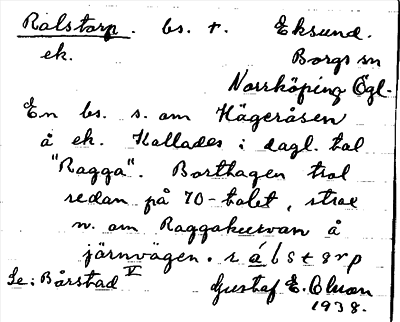 Rálstorp. bs. t. Eksund.
ek. Borgs sn
Norrköping Ögl.
En bs. s. om Hägeråsen
å ek. Kallades i dagl. tal
"Ragga". Borttagen trol
redan på 70-talet, strax
n. om Raggakurvan å
järnvägen. rálstɘrp
Se: Bårstad V Gustaf E. Olsson
1938.